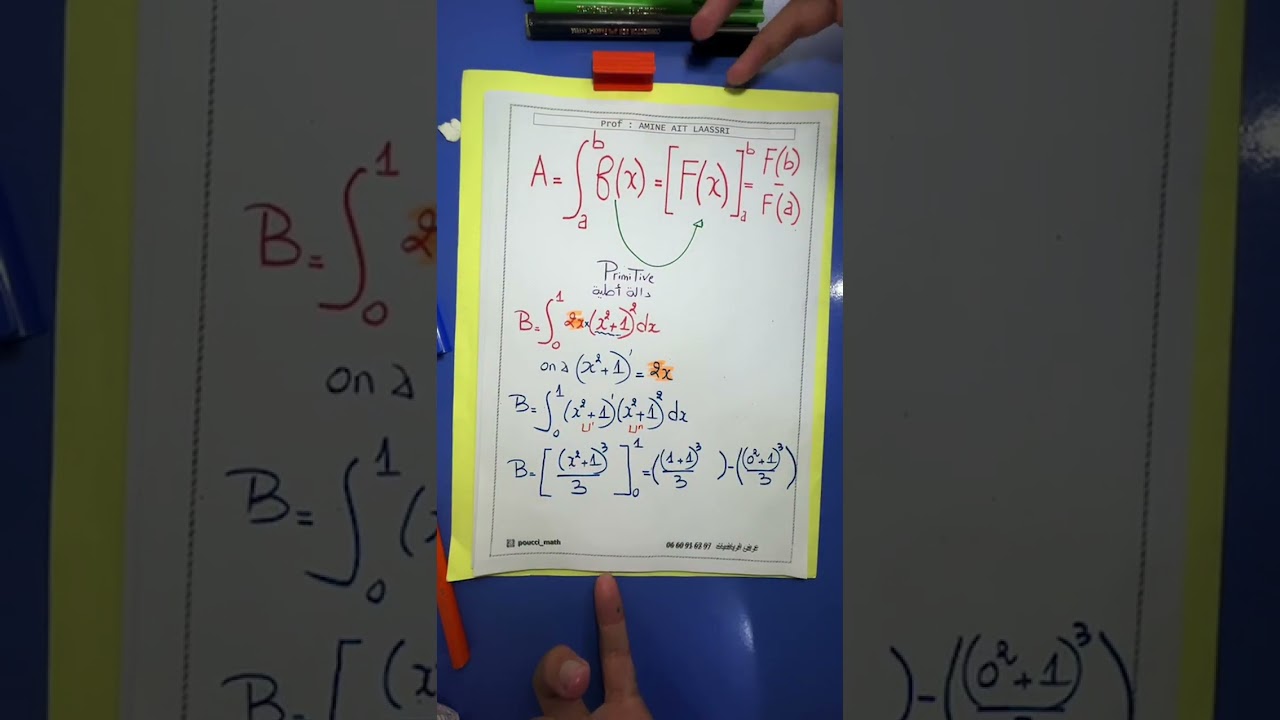 Prof : AMINE AIT LAASSRI
A = ∫_a^b f(x) = [F(x)]_a^b = F(b) - F(a)
Primitive
دالة أصلية
B = ∫_0^1 2x × (x²+1)² dx
on a (x²+1)' = 2x
B = ∫_0^1 (x²+1)' (x²+1)² dx
u' uⁿ
B = [(x²+1)³/3]_0^1 = ((1+1)³/3) - ((0²+1)³/3)
poucci_math
06 60 91 63 97